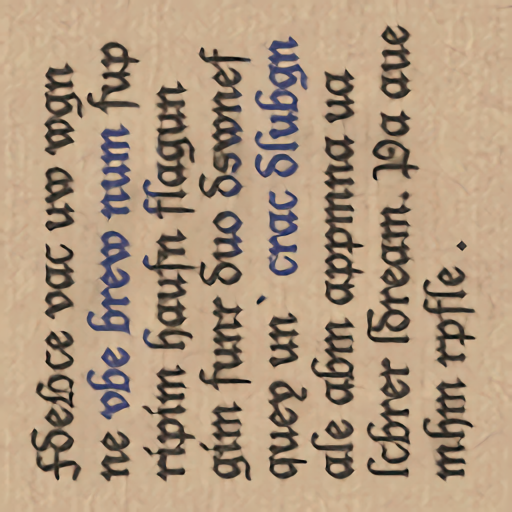 fdehce vac uw wgn
ne vbe brew num fup
ripim haufn flagun
gim funr duo dswnef
quey un` crac dlubgn
ale abm appmna ua
lcbrer ldream. Pa aue
mhm rpffe .